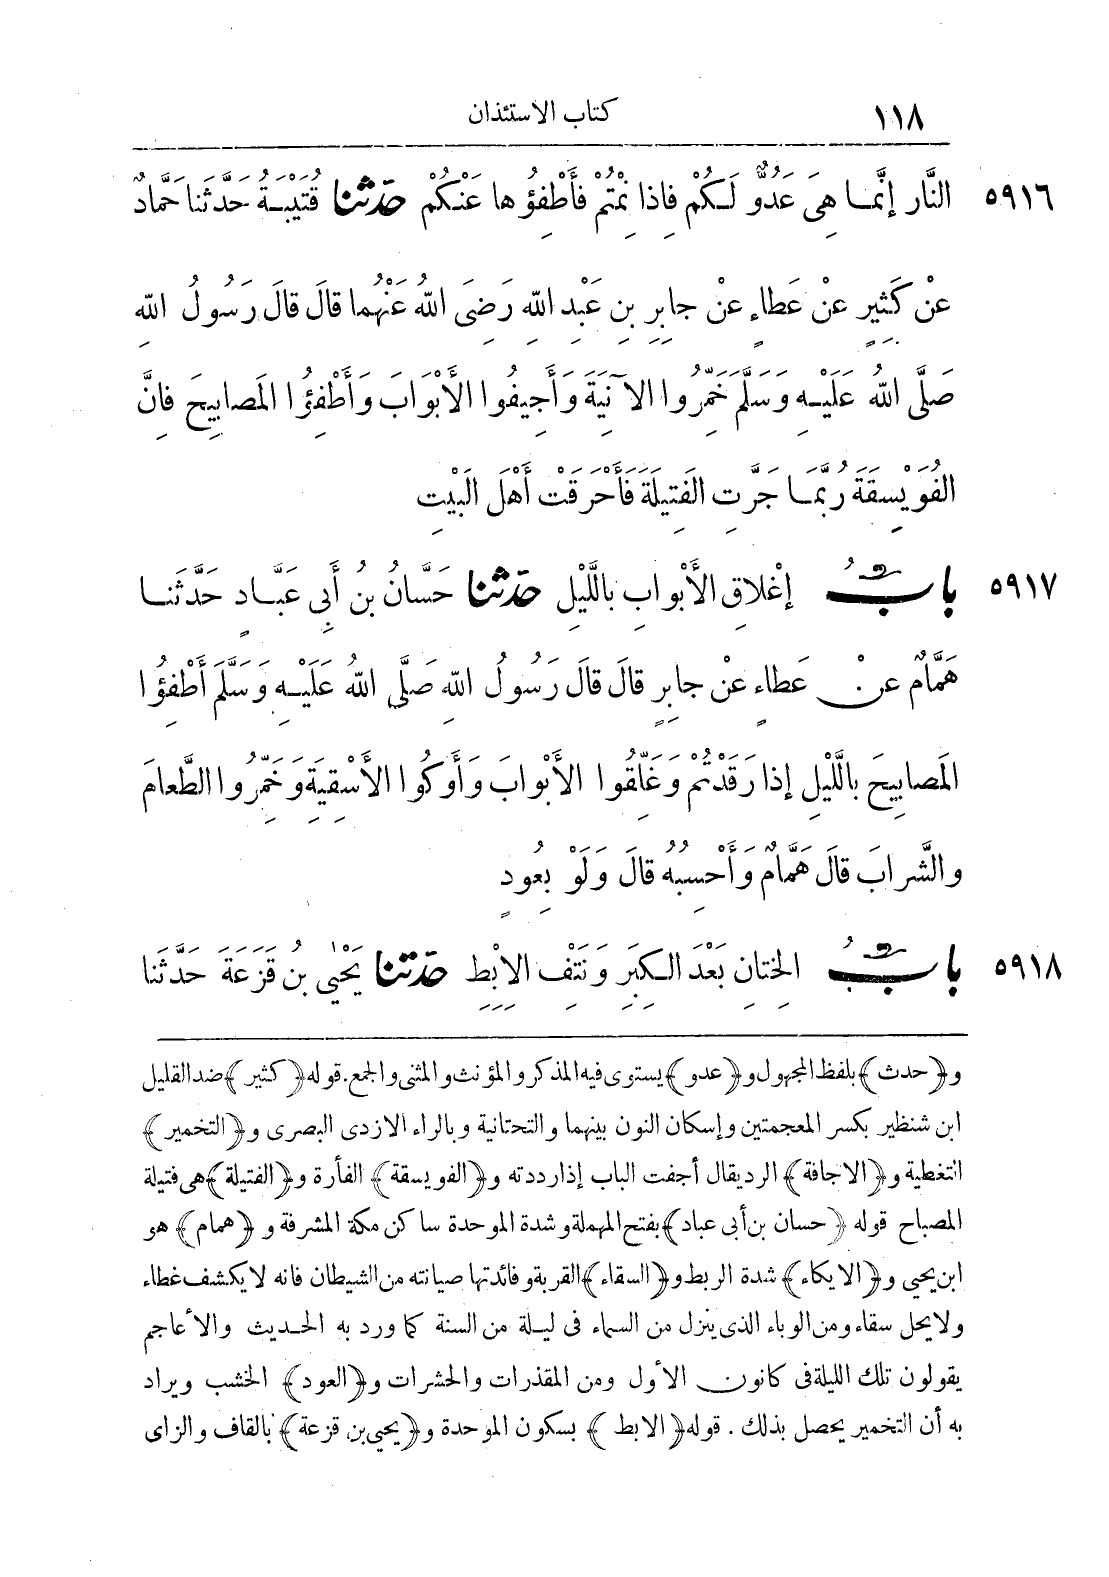 ١١٨ كتاب الاستئذان
٥٩١٦ النَّارَ إِنَّمَا هِيَ عَدُوٌّ لَكُمْ فَاذَا نِمْتُمْ فَأَطْفِؤُهَا عَنْكُمْ حدثنا قُتَيْبَةُ حَدَّثَنَا حَمَّادٌ
عَنْ كَثِيرٍ عَنْ عَطاءٍ عَنْ جابِرِ بنِ عَبْدِ اللهِ رَضِىَ اللهُ عَنْهُما قالَ قالَ رَسُولُ اللهِ
صَلَّى اللهُ عَلَيْهِ وَسَلَّمَ خَمِّرُوا الآنِيَةَ وَأَجِيفُوا الأَبْوَابَ وَأَطْفِؤُا المَصابِيحَ فَانَّ
الفُوَيْسِقَةَ رُبَّمَا جَرَّتِ الفَتِيلَةَ فَأَحْرَقَتْ أَهْلَ البَيْتِ
٥٩١٧ باب إِغْلاقِ الأَبْوابِ بالَّلَيْلِ حدثنا حَسَّانُ بنُ أَبِى عَبَّادٍ حَدَّثَنا
هَمَّامٌ عَنْ عَطاءٍ عَنْ جابِرٍ قالَ قالَ رَسُولُ اللهِ صَلَّى اللهُ عَلَيْهِ وَسَلَّمَ أَطْفِؤُا
المَصابِيحَ بالَّلَيْلِ إذا رَقَدْتُمْ وَغَلِّقُوا الأَبْوابَ وَأَوْكُوا الأَسْقِيَةَ وَخَمِّرُوا الطَّعامَ
والشَّرابَ قالَ هَمَّامٌ وَأَحْسِبُهُ قالَ وَلَوْ بِعُودٍ
٥٩١٨ باب الخِتانِ بَعْدَ الكِبَرِ وَنَتْفِ الإِبِطِ حدثنا يَحْيَى بنُ قَزَعَةَ حَدَّثَنا
و﴿حدث﴾ بلفظ المجهول و﴿عدو﴾ يستوى فيه المذكر والمؤنث والمثنى والجمع. قوله ﴿كثير﴾ ضد القليل
ابن شنظير بكسر المعجمتين وإسكان النون بينهما والتحتانية وبالراء الازدى البصرى و﴿التخمير﴾
التغطية و﴿الاجافة﴾ الرد يقال أجفت الباب إذا رددته و﴿الفويسقة﴾ الفأرة و﴿الفتيلة﴾ هى فتيلة
المصباح قوله ﴿حسان بن أبى عباد﴾ بفتح المهملة وشدة الموحدة ساكن مكة المشرفة و﴿همام﴾ هو
ابن يحيى و﴿الايكاء﴾ شدة الربط و﴿السقاء﴾ القربة وفائدتها صيانته من الشيطان فانه لا يكشف غطاء
ولا يحل سقاء ومن الوباء الذى ينزل من السماء فى ليلة من السنة كما ورد به الحديث والأعاجم
يقولون تلك الليلة فى كانون الأول ومن المقذرات والحشرات و﴿العود﴾ الخشب ويراد
به أن التخمير يحصل بذلك. قوله ﴿الابط﴾ بسكون الموحدة و﴿يحيى بن قزعة﴾ بالقاف والزاى